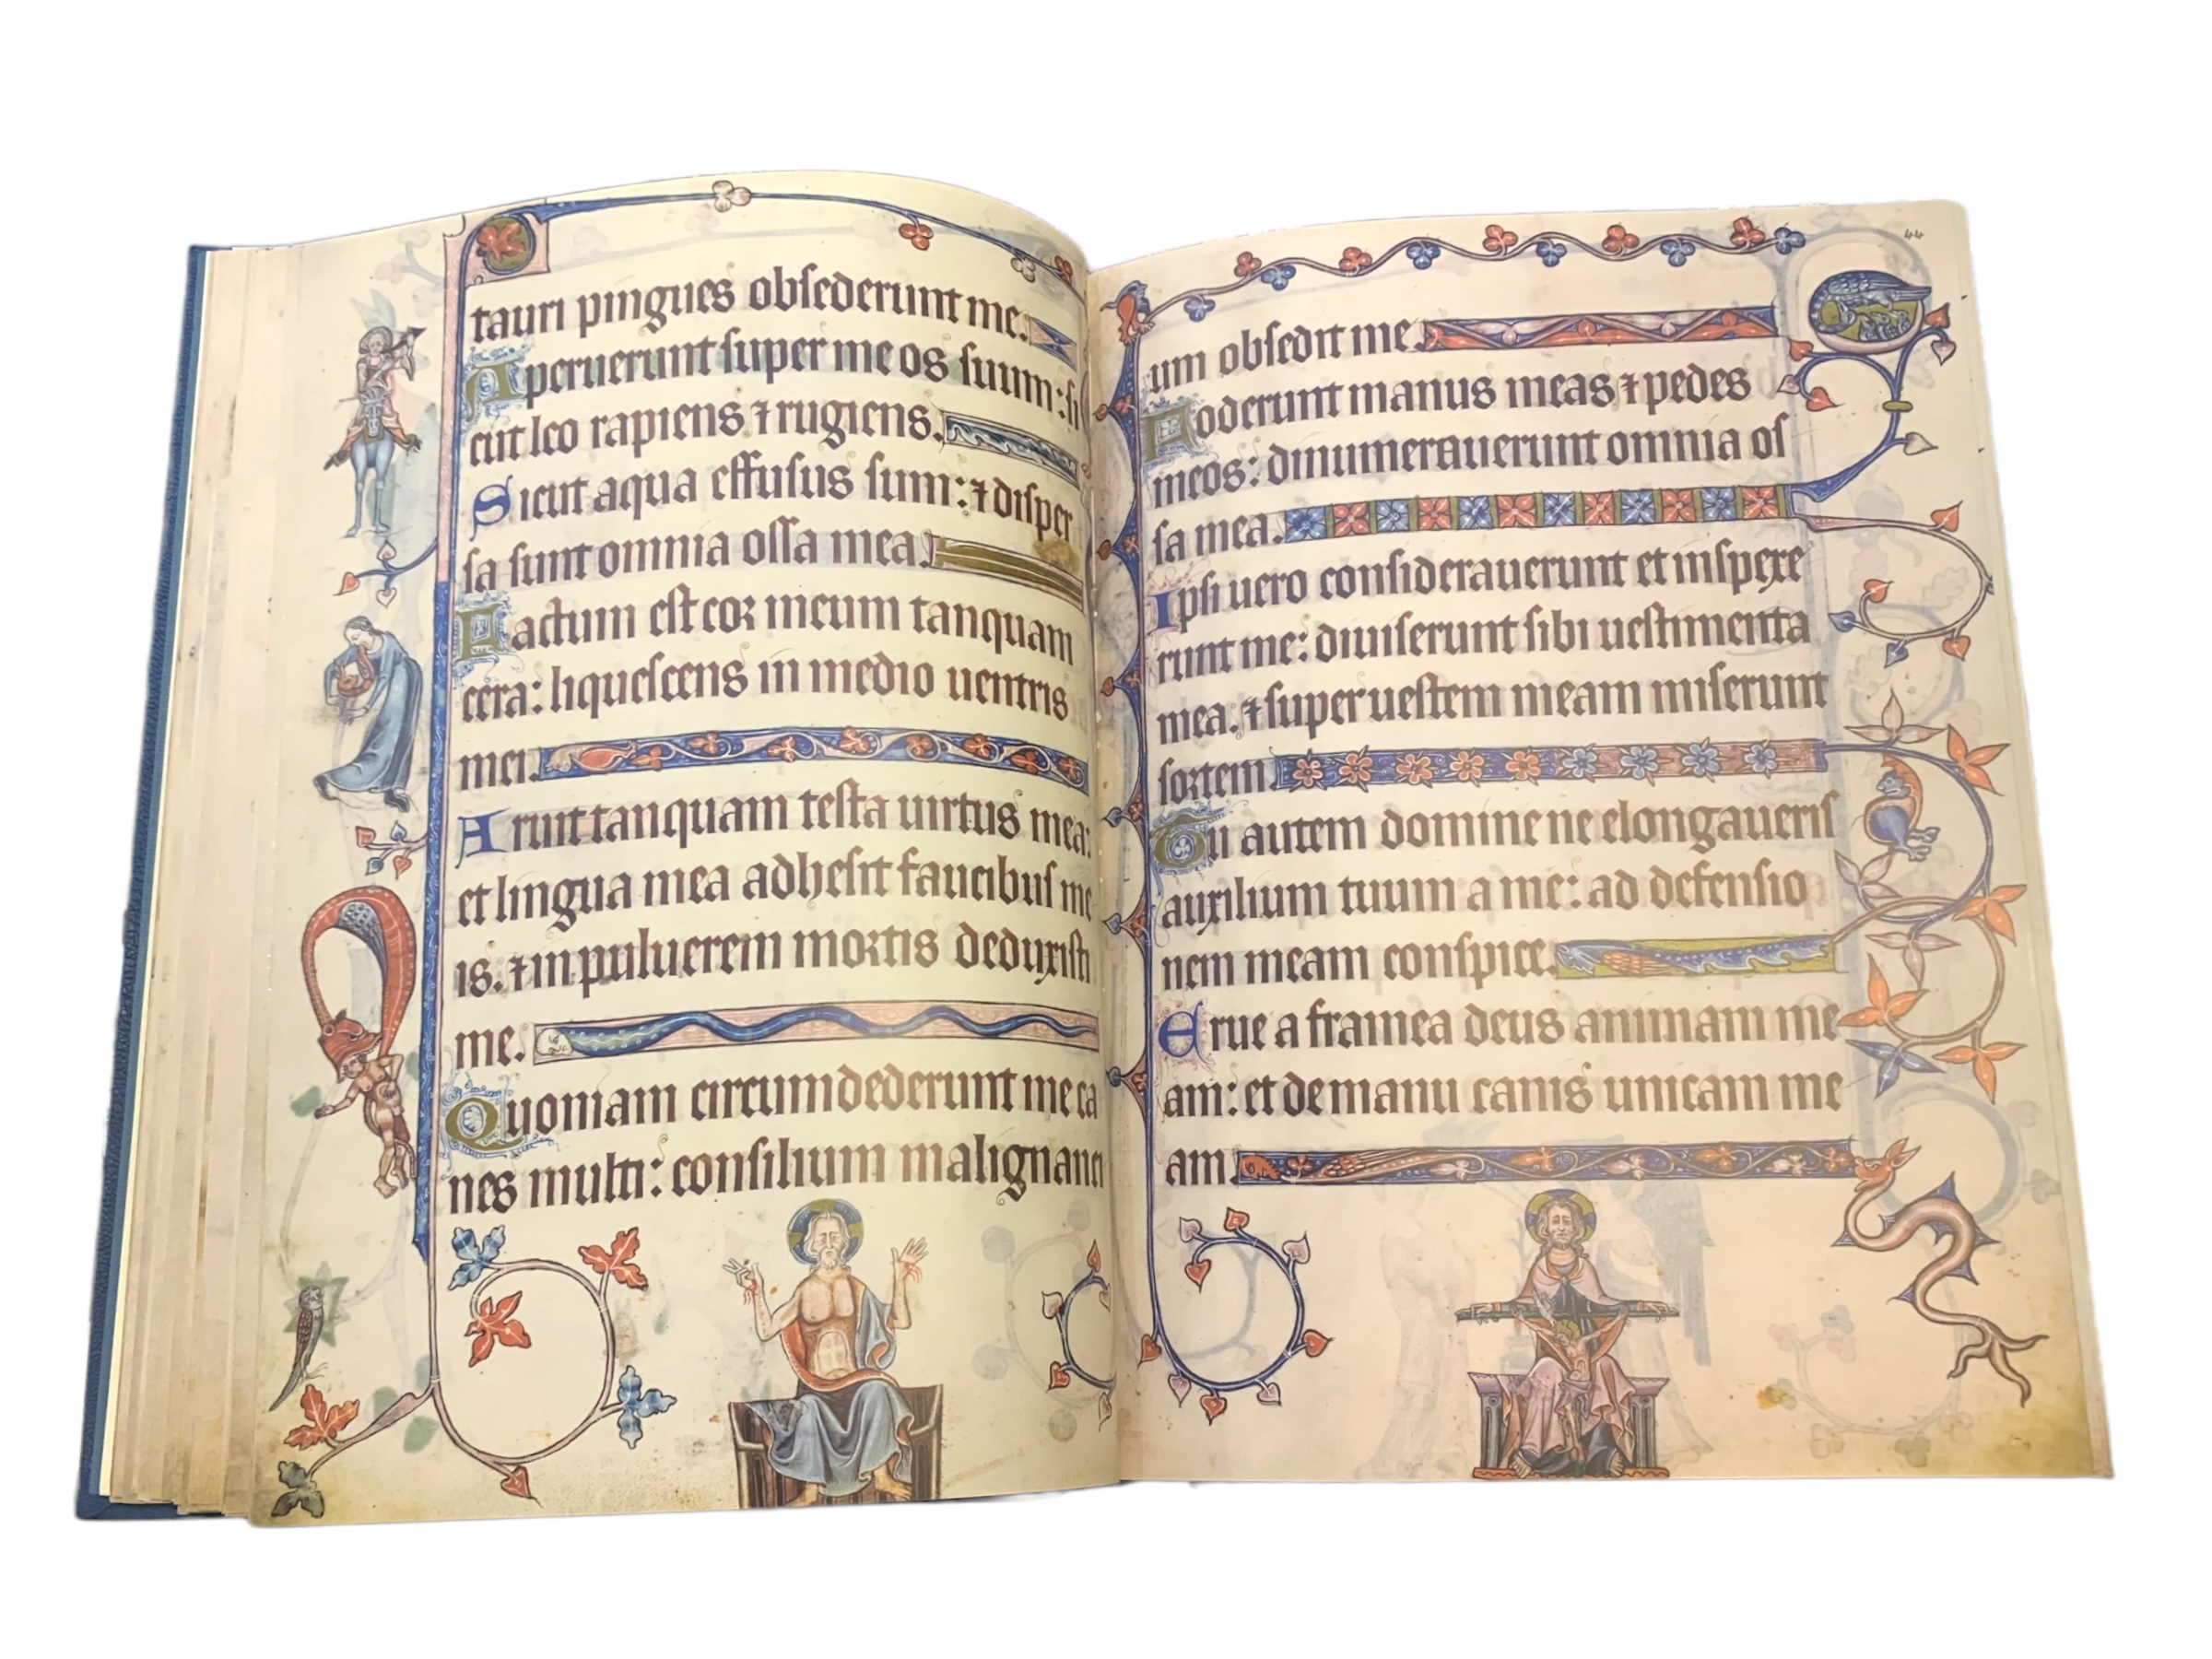 tauri pingues obsederunt me.
Aperuerunt super me os suum: si
cut leo rapiens ⁊ rugiens.
Sicut aqua effusus sum: ⁊ disper
sa sunt omnia ossa mea.
Factum est cor meum tanquam
cera: liquescens in medio uentris
mei.
Aruit tanquam testa uirtus mea:
et lingua mea adhesit faucibus me
is. ⁊ in puluerem mortis deduxisti
me.
Quoniam circumdederunt me ca
nes multi: consilium malignanti
44
um obsedit me.
Foderunt manus meas ⁊ pedes
meos: dinumerauerunt omnia os
sa mea.
Ipsi uero considerauerunt et inspexe
runt me: diuiserunt sibi uestimenta
mea. ⁊ super uestem meam miserunt
sortem.
Tu autem domine ne elongaueris
auxilium tuum a me: ad defensio
nem meam conspice.
Erue a framea deus animam me
am: et de manu canis unicam me
am.